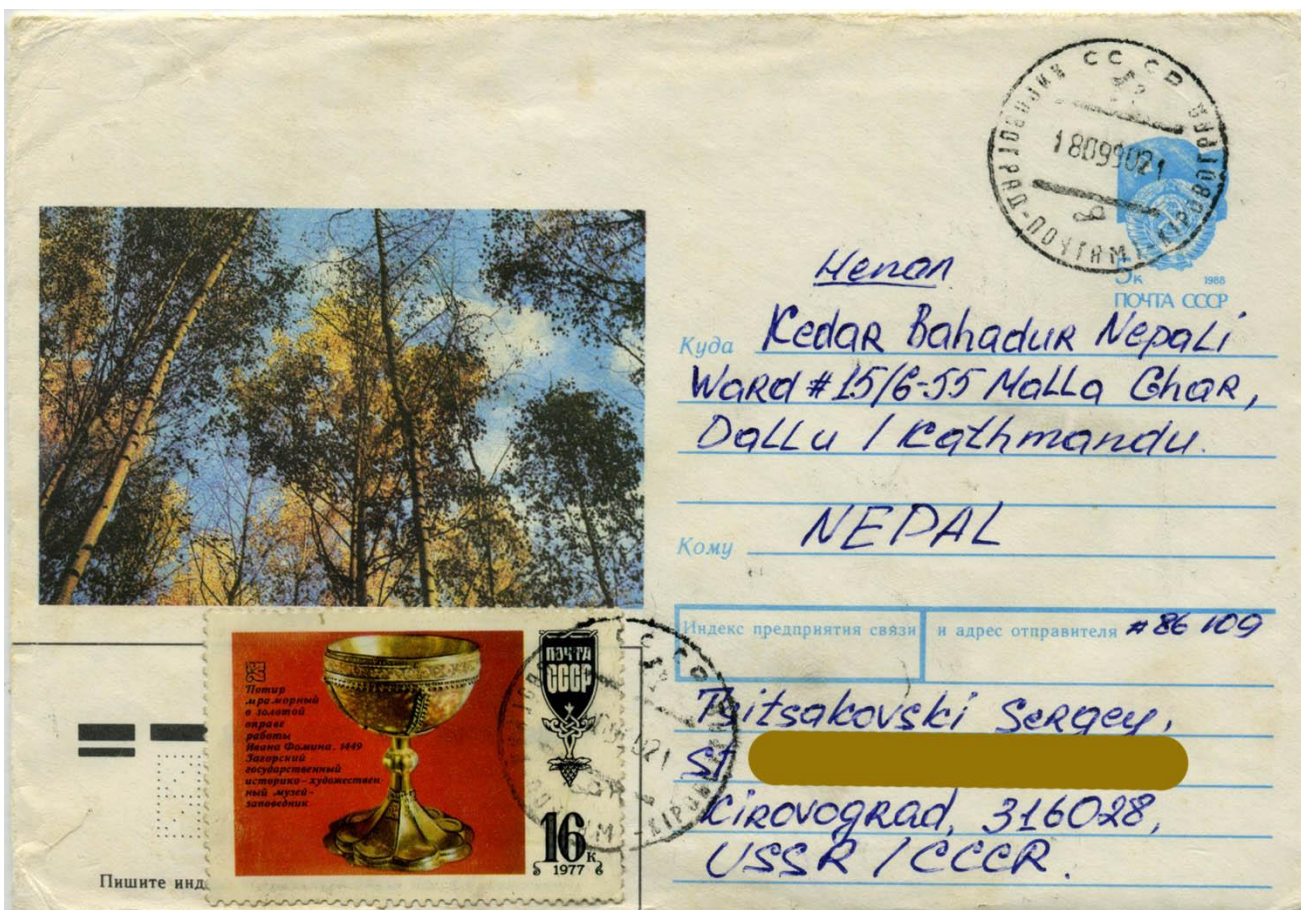 СССР
18099021
5к 1988
ПОЧТА СССР
Непал
Куда Kedar Bahadur Nepali
Ward # 15/6-55 Malla Ghar,
Dallu / Kathmandu.
Кому NEPAL
Индекс предприятия связи и адрес отправителя # 86 109
Tsitsakovski Sergey,
St
Kirovograd, 316028,
USSR / СССР.
ПОЧТА
СССР
Потир
мраморный
в золотой
оправе
работы
Ивана Фомина. 1449
Загорский
государственный
историко-художествен
ный музей-
заповедник
16к
1977
Пишите